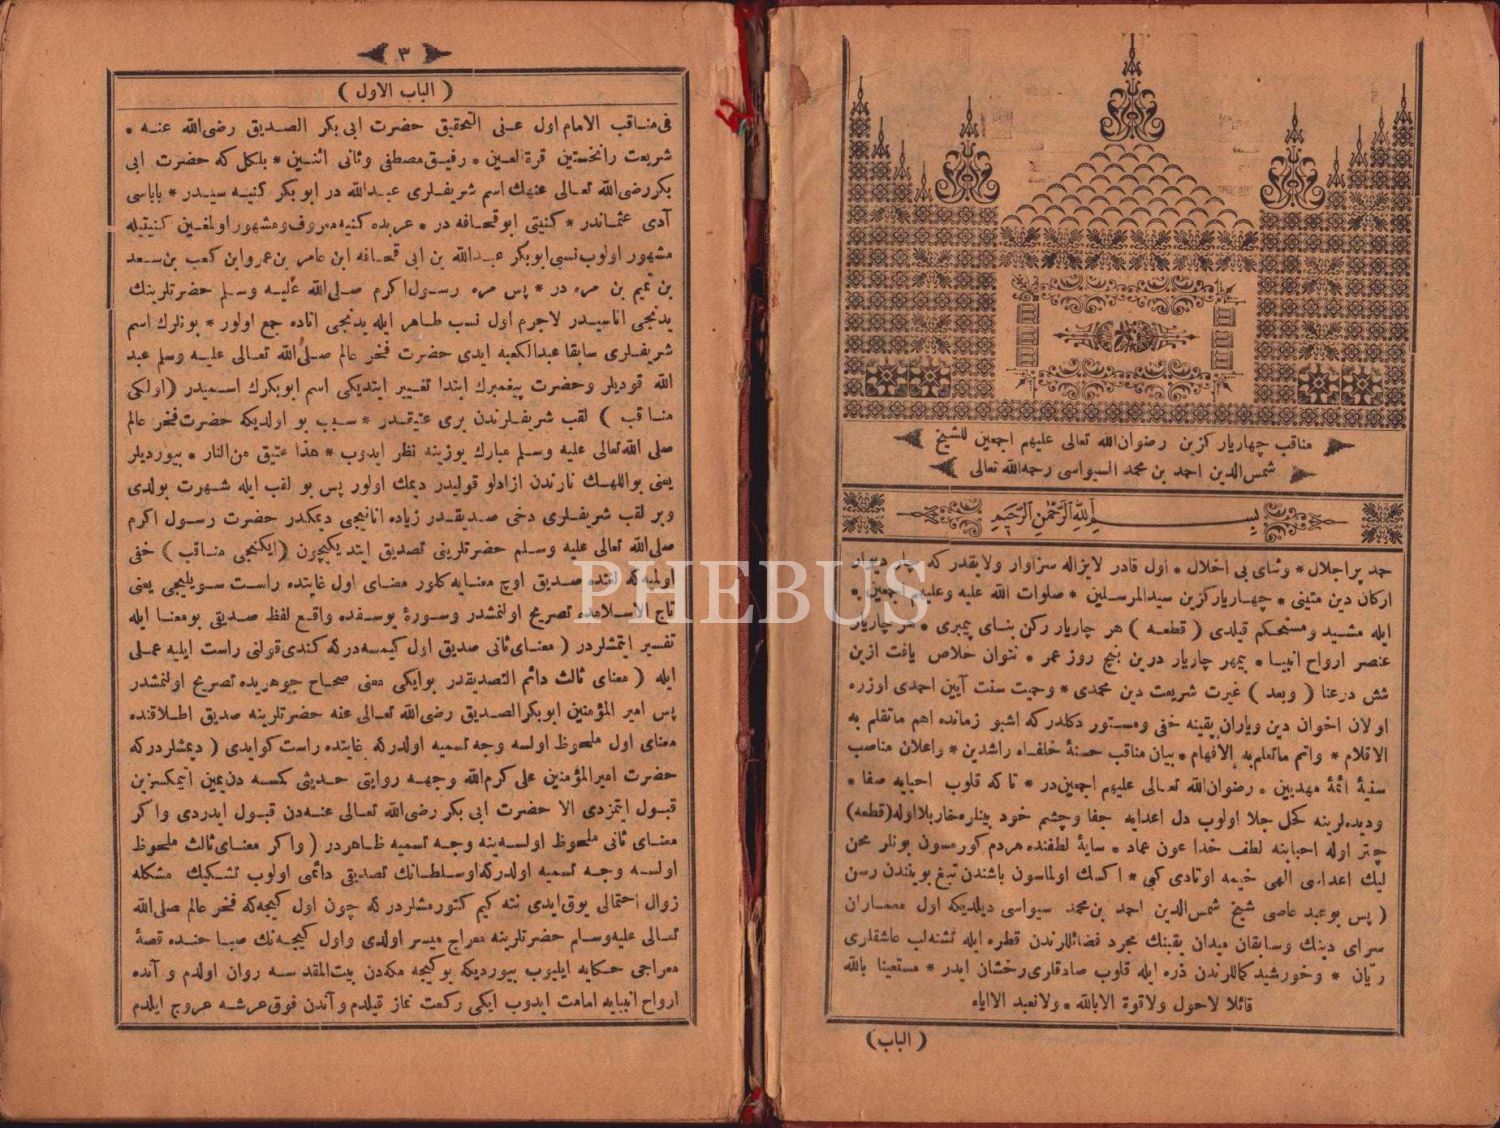 مناقب چهاریار كزین رضوان‌الله تعالی علیهم اجمعین للشیخ
شمس‌الدین احمد بن محمد السیواسی رحمه‌الله تعالی
بسم الله الرحمن الرحیم
حمد پر اجلال * وثنای بی اخلال * اول قادر لایزاله سزاوار ولایقدر كه چار دیوار
اركان دین متینی * چهاریار كزین سیدالمرسلین * صلوات الله علیه وعلیهم اجمعین *
ایله مشید و مستحكم قیلدی ( قطعه ) هر چاریار ركن بنای پیمبری * هر چاریار
عنصر ارواح انبیا * بیمهر چاریار درین پنج روز عمر * نتوان خلاص یافت ازین
شش درعنا ( وبعد ) غیرت شریعت دین محمدی * وحمیت سنت آیین احمدی اوزره
اولان اخوان دین ویاران یقینه خفی ومستور دكلدر كه اشبو زمانده اهم ماتقلم به
الاقلام * واتم ماتعلم به الافهام * بیان مناقب حسنهٔ خلفاء راشدین * واعلان مناصب
سنیهٔ ائمهٔ مهدیین * رضوان‌الله تعالی علیهم اجمعین‌در * تا كه قلوب احبابه صفا *
ودیده‌لرینه كحل جلا اولوب دل اعدایه جفا وچشم خود بینلره خار بلا اوله (قطعه)
چتر اوله احبابنه لطف خدا عون عماد * سایهٔ لطفنده هردم كورمسون بونلر محن
لیك اعداسی الهی خیمه اوتادی كبی * اكسك اولماسون باشندن تیغ بویندن رسن
( پس بو عبد عاصی شیخ شمس‌الدین احمد بن محمد سیواسی دیلدیكه اول معماران
سرای دینك وسابقان میدان یقینك مجرد فضائللرندن قطره ایله تشنه‌لب عاشقلری
ریان * وخورشید كماللرندن ذره ایله قلوب صادقلری رخشان ایدر * مستعینا بالله
قائلا لاحول ولاقوة الابالله * ولانعبد الاایاه
( الباب )
٣
( الباب الاول )
فی مناقب الامام اول عنی التحقیق حضرت ابی بكر الصدیق رضی‌الله عنه *
شریعت رانخستین قرة العین * رفیق مصطفی وثانی اثنین * بلكل كه حضرت ابی
بكر رضی‌الله تعالی عنهك اسم شریفلری عبدالله در ابو بكر كنیه سیدر * باباسی
آدی عثماندر * كنیتی ابو قحافه در * عربده كنیه معروف ومشهور اولمغین كنیتیله
مشهور اولوب نسبی ابو بكر عبدالله بن ابی قحافه ابن عامر بن عمرو ابن كعب بن سعد
بن تمیم بن مره در * پس مره رسول اكرم صلی‌الله علیه وسلم حضرتلرینك
یدنجی اتاسیدر لاجرم اول نسب طاهر ایله یدنجی اتاده جمع اولور * بونلرك اسم
شریفلری سابقا عبدالكعبه ایدی حضرت فخر عالم صلی‌الله تعالی علیه وسلم عبد
الله قودیلر وحضرت پیغمبرك ابتدا تغییر ایتدیكی اسم ابو بكرك اسمیدر (اولكی
مناقب ) لقب شریفلرندن بری عتیقدر * سبب بو اولدیكه حضرت فخر عالم
صلی الله تعالی علیه وسلم مبارك یوزینه نظر ایدوب * هذا عتیق من النار * بیوردیلر
یعنی بو اللهك نارندن ازادلو قولیدر دیمك اولور پس بو لقب ایله شهرت بولدی
وبر لقب شریفلری دخی صدیقدر زیاده انانیجی دیمكدر حضرت رسول اكرم
صلی‌الله تعالی علیه وسلم حضرتلرینی تصدیق ایتدیكیچون (ایكنجی مناقب ) خفی
اولمیه‌كه لغتده صدیق اوچ معنایه كلور معنای اول غایتده راست سویلیجی یعنی
تاج الاسلامده تصریح اولنمشدر وسورهٔ یوسفده واقع لفظ صدیقی بو معنا ایله
تفسیر ایتمشلردر ( معنای ثانی صدیق اول كیمسه‌دركه كندی قولنی راست ایلیه عملی
ایله ( معنای ثالث دائم التصدیقدر بوایكی معنی صحاح جوهریده تصریح اولنمشدر
پس امیر المؤمنین ابو بكر الصدیق رضی‌الله تعالی عنه حضرتلرینه صدیق اطلاقنده
معنای اول ملحوظ اولسه وجه تسمیه اولدركه غایتده راست كو ایدی ( دیمشلردركه
حضرت امیرالمؤمنین علی كرم‌الله وجهه روایتی حدیثی كمسه دن یمین ایتمكسزین
قبول ایتمزدی الا حضرت ابی بكر رضی‌الله تعالی عنه‌دن قبول ایدردی واكر
معنای ثانی ملحوظ اولسه‌ینه وجه تسمیه ظاهردر ( واكر معنای ثالث ملحوظ
اولسه وجه تسمیه اولدركه اوسلطانك تصدیقی دائمی اولوب تشكیك مشكله
زوال احتمالی یوق ایدی نته كیم كتورمشلردركه چون اول كیجه‌كه فخر عالم صلی‌الله
تعالی علیه وسلم حضرتلرینه معراج میسر اولدی واول كیجه‌نك صباحنده قصهٔ
معراجی حكایه ایلیوب بیوردیكه بو كیجه مكه‌دن بیت‌المقدسه روان اولدم و آنده
ارواح انبیایه امامت ایدوب ایكی ركعت نماز قیلدم و آندن فوق عرشه عروج ایلدم
PHEBUS